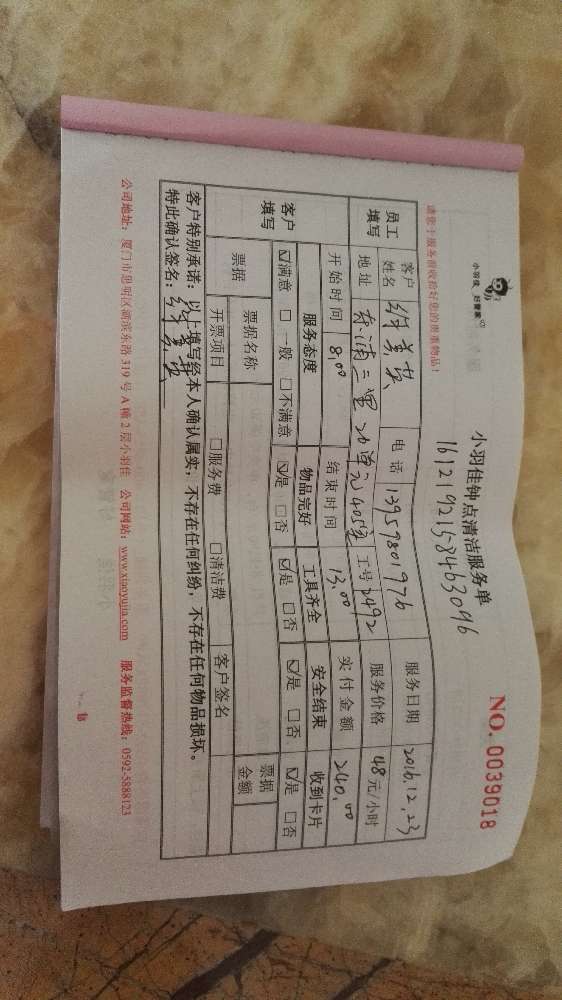 小羽佳 好管家
小羽佳钟点清洁服务单
1612192158463096
NO. 0039018
请您于服务前收拾好您的贵重物品!
员工填写 客户姓名 电话 13959801976 服务日期 2016.12.23
地址 东浦二里20单元405室 工号 2492 服务价格 48元/小时
开始时间 8.00 结束时间 13.00 实付金额 240.00
客户填写 服务态度 物品完好 工具齐全 安全结束 收到卡片
☑满意 □一般 □不满意 ☑是 □否 ☑是 □否 ☑是 □否 ☑是 □否
票据 票据名称 客户签名 票据金额
开票项目 □服务费 □清洁费
客户特别承诺:以上填写经本人确认属实,不存在任何纠纷,不存在任何物品损坏。
特此确认签名:
公司地址:厦门市思明区湖滨东路319号A幢2层小羽佳 公司网站:www.xiaoyujia.com 服务监督热线:0592-5888123